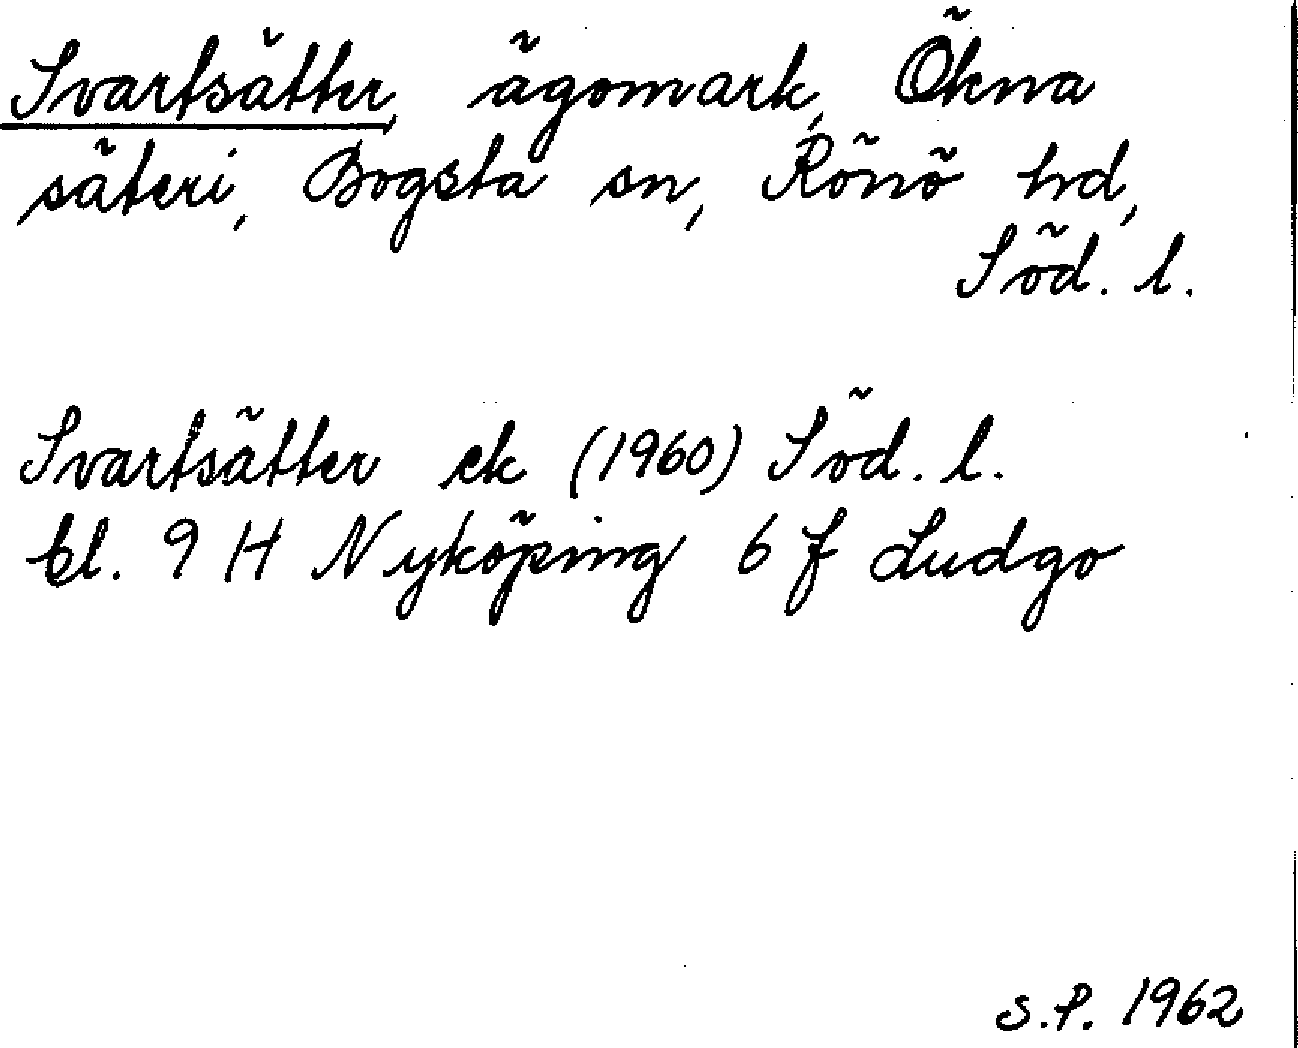 Svartsätter, ägomark, Ökna
säteri, Bogsta sn, Rönö hd,
Söd. l.
Svartsätter ek (1960) Söd. l.
bl. 9 H Nyköping 6 f Ludgo
S.P. 1962